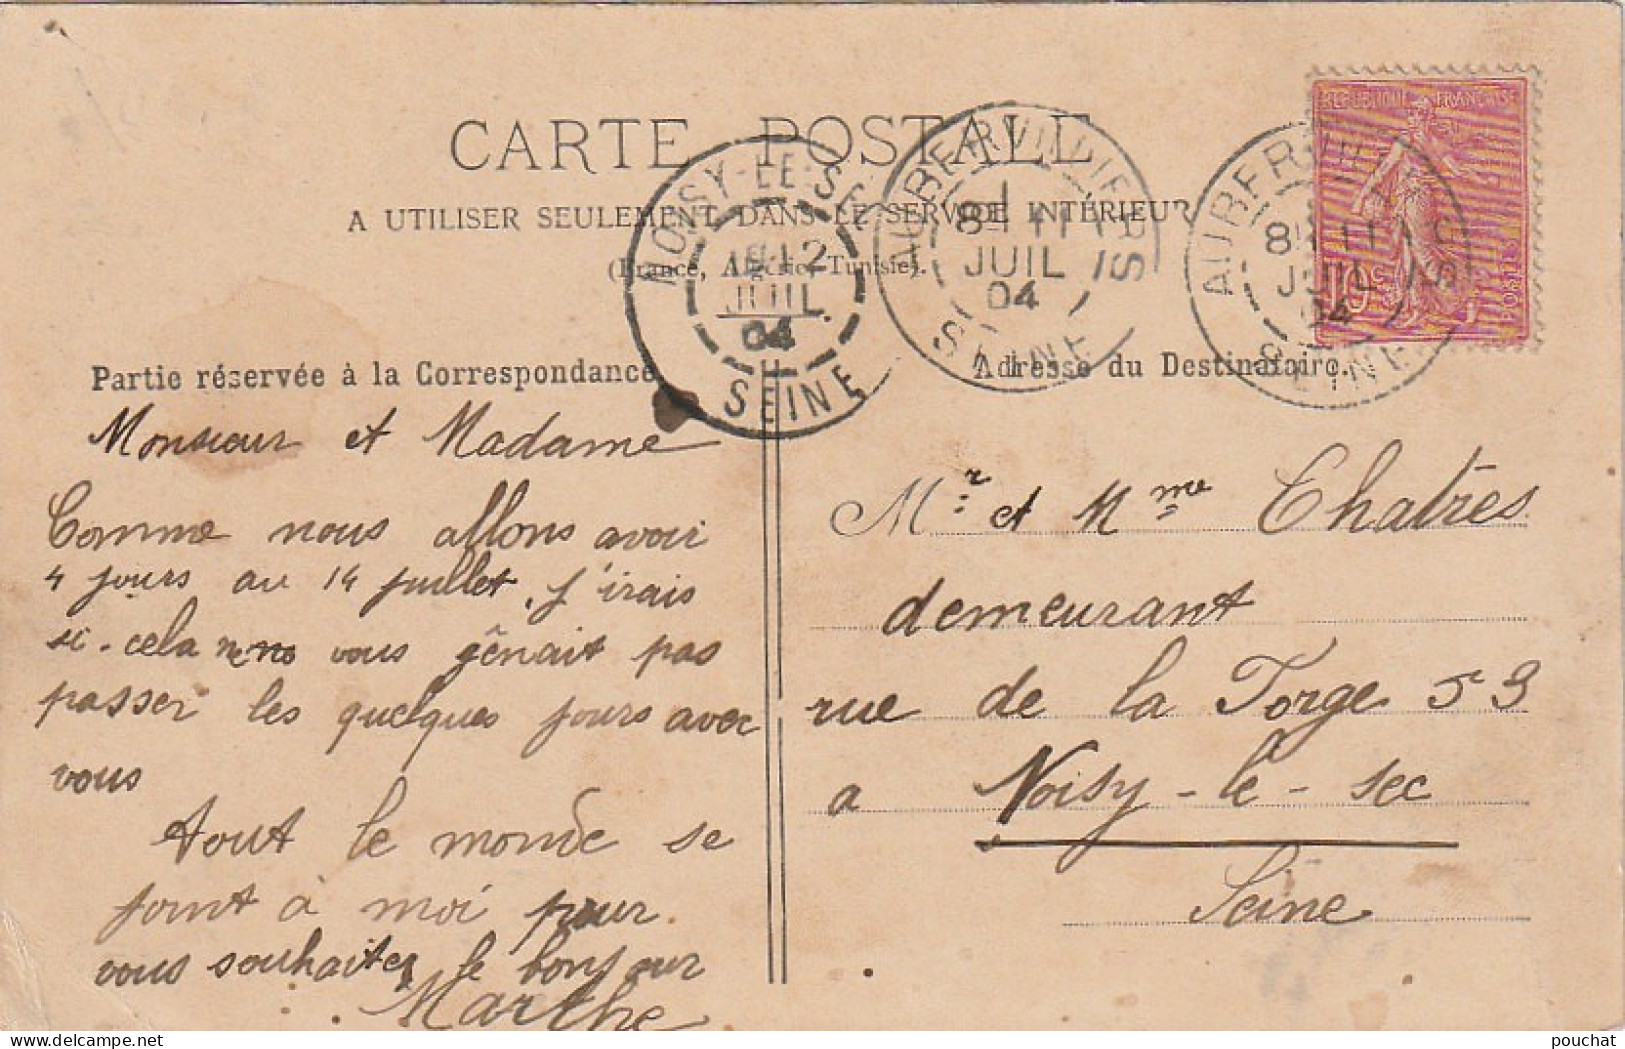 CARTE POSTALE
A UTILISER SEULEMENT DANS LE SERVICE INTÉRIEUR
(France, Algérie, Tunisie).
NOISY-LE-SEC
12
JUIL.
04
SEINE
AUBERVILLIERS
8H 11
JUIL
04
SEINE
AUBERV
8H 11
JUIL
04
SEINE
REPUBLIQUE FRANÇAISE
10c
POSTES
Partie réservée à la Correspondance
Adresse du Destinataire.
Monsieur et Madame
Comme nous allons avoir
4 jours au 14 juillet, j'irais
si cela ne vous gênait pas
passer les quelques jours avec
vous
tout le monde se
joint à moi pour
vous souhaiter le bonjour
Marthe
Mr et Mme Chatres
demeurant
rue de la Forge 53
a Noisy-le-sec
Seine
pouchat